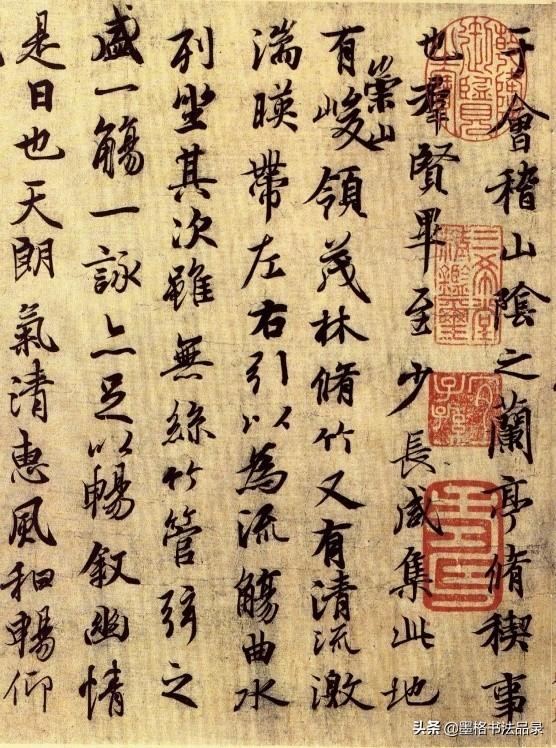 于會稽山陰之蘭亭脩稧事
也羣賢畢至少長咸集此地
有崇山峻領茂林脩竹又有清流激
湍暎帶左右引以為流觴曲水
列坐其次雖無絲竹管弦之
盛一觴一詠亦足以暢敘幽情
是日也天朗氣清惠風和暢仰
三希堂
精鑑璽
宜
子孫
头条 @墨格书法品录